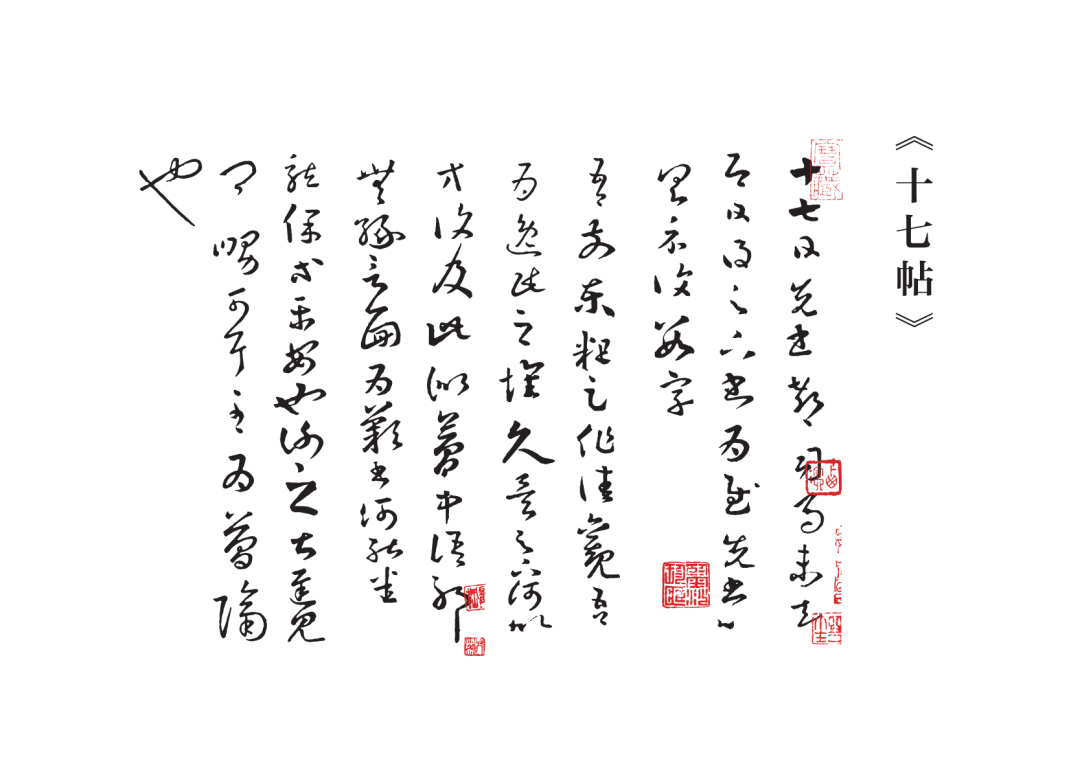 《十七帖》
十七日先書郗司馬未去
即日得足下書為慰先書以
具示復數字
吾前東粗足作佳觀吾
為逸民之懷久矣足下何以
方復及此似夢中語耶
無緣言面為歎書何能悉
龍保等平安也謝之甚遲見
卿舅可耳至為簡隔
也
寶藏